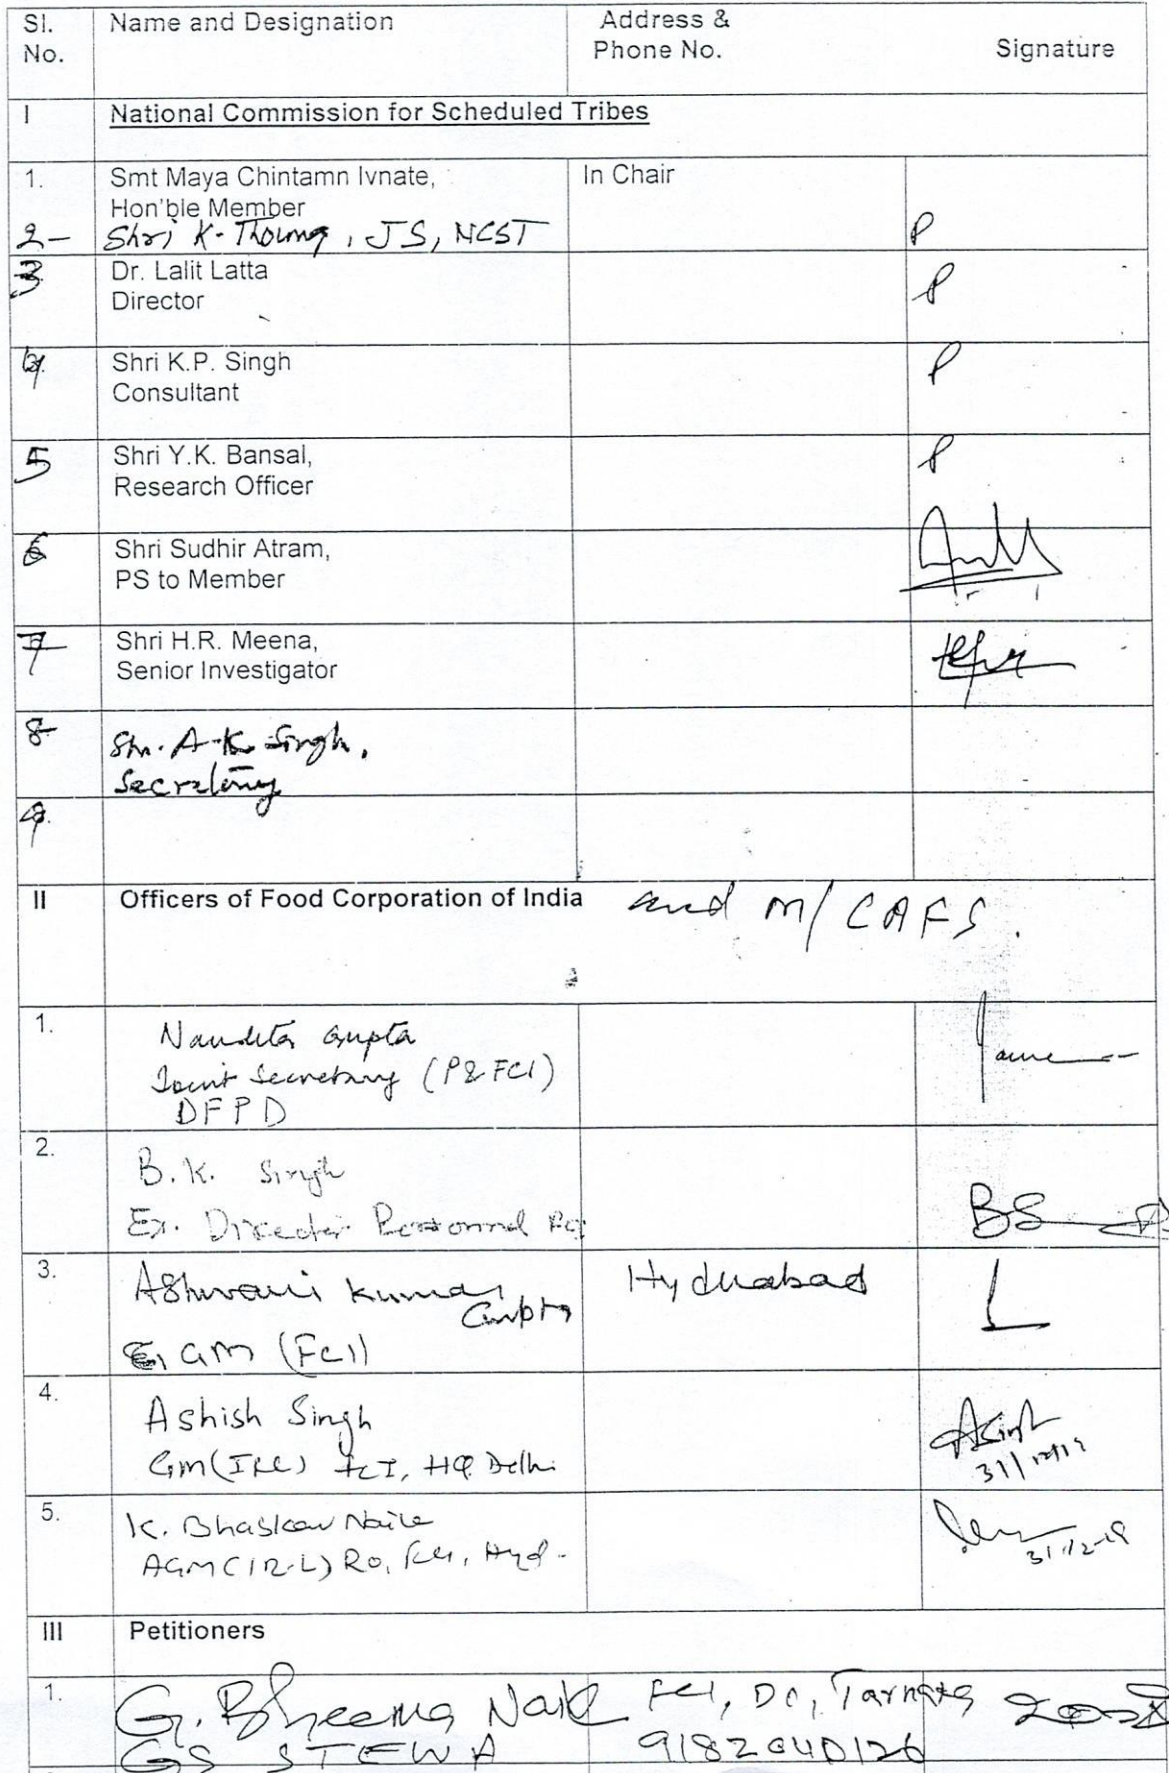 Sl. No. Name and Designation Address & Phone No. Signature
I National Commission for Scheduled Tribes
1. Smt Maya Chintamn Ivnate, In Chair
Hon'ble Member
2- Shri K. Thoung, JS, NCST P
3 Dr. Lalit Latta P
Director
4. Shri K.P. Singh P
Consultant
5 Shri Y.K. Bansal, P
Research Officer
6 Shri Sudhir Atram,
PS to Member
7 Shri H.R. Meena,
Senior Investigator
8 Shr. A.K. Singh,
Secretary
9.
II Officers of Food Corporation of India and M/CAFS.
1. Nandita Gupta
Joint Secretary (P&FCI)
DFPD
2. B.K. Singh
Ex. Director Personnel FCI
3. Ashwani Kumar Gupta Hyderabad
GM (FCI)
4. Ashish Singh
GM( ) FCI, HQ Delhi
31/12/19
5. K. Bhaskar Naik
AGM(IR-L) RO, FCI, Hyd-
31-12-19
III Petitioners
1. G. Bheema Naik FCI, DO, Tarnaka
GS STEWA 9182040126